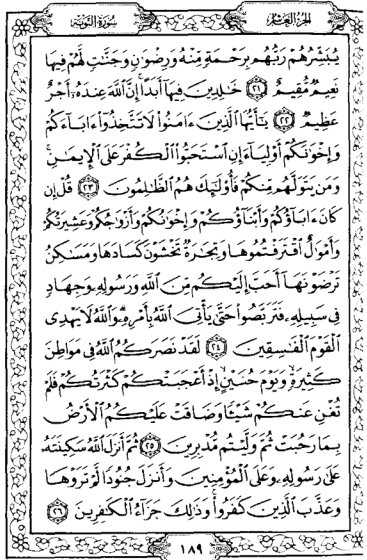 الجزء العاشر سورة التوبة
يُبَشِّرُهُمْ رَبُّهُم بِرَحْمَةٍ مِّنْهُ وَرِضْوَٰنٍ وَجَنَّٰتٍ لَّهُمْ فِيهَا
نَعِيمٌ مُّقِيمٌ ٢١ خَٰلِدِينَ فِيهَآ أَبَدًا إِنَّ ٱللَّهَ عِندَهُۥٓ أَجْرٌ
عَظِيمٌ ٢٢ يَٰٓأَيُّهَا ٱلَّذِينَ ءَامَنُوا۟ لَا تَتَّخِذُوٓا۟ ءَابَآءَكُمْ
وَإِخْوَٰنَكُمْ أَوْلِيَآءَ إِنِ ٱسْتَحَبُّوا۟ ٱلْكُفْرَ عَلَى ٱلْإِيمَٰنِ ۚ
وَمَن يَتَوَلَّهُم مِّنكُمْ فَأُو۟لَٰٓئِكَ هُمُ ٱلظَّٰلِمُونَ ٢٣ قُلْ إِن
كَانَ ءَابَآؤُكُمْ وَأَبْنَآؤُكُمْ وَإِخْوَٰنُكُمْ وَأَزْوَٰجُكُمْ وَعَشِيرَتُكُمْ
وَأَمْوَٰلٌ ٱقْتَرَفْتُمُوهَا وَتِجَٰرَةٌ تَخْشَوْنَ كَسَادَهَا وَمَسَٰكِنُ
تَرْضَوْنَهَآ أَحَبَّ إِلَيْكُم مِّنَ ٱللَّهِ وَرَسُولِهِۦ وَجِهَادٍ
فِى سَبِيلِهِۦ فَتَرَبَّصُوا۟ حَتَّىٰ يَأْتِىَ ٱللَّهُ بِأَمْرِهِۦ ۗ وَٱللَّهُ لَا يَهْدِى
ٱلْقَوْمَ ٱلْفَٰسِقِينَ ٢٤ لَقَدْ نَصَرَكُمُ ٱللَّهُ فِى مَوَاطِنَ
كَثِيرَةٍ ۙ وَيَوْمَ حُنَيْنٍ ۙ إِذْ أَعْجَبَتْكُمْ كَثْرَتُكُمْ فَلَمْ
تُغْنِ عَنكُمْ شَيْـًٔا وَضَاقَتْ عَلَيْكُمُ ٱلْأَرْضُ
بِمَا رَحُبَتْ ثُمَّ وَلَّيْتُم مُّدْبِرِينَ ٢٥ ثُمَّ أَنزَلَ ٱللَّهُ سَكِينَتَهُۥ
عَلَىٰ رَسُولِهِۦ وَعَلَى ٱلْمُؤْمِنِينَ وَأَنزَلَ جُنُودًا لَّمْ تَرَوْهَا
وَعَذَّبَ ٱلَّذِينَ كَفَرُوا۟ ۚ وَذَٰلِكَ جَزَآءُ ٱلْكَٰفِرِينَ ٢٦
١٨٩